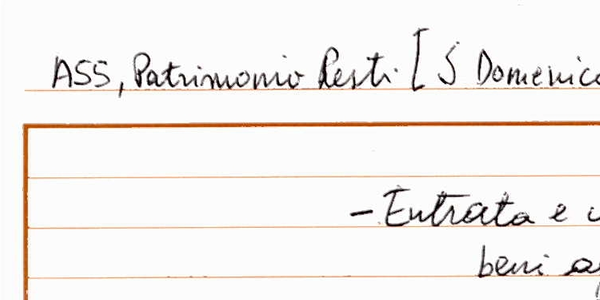 ASS, Patrimonio Resti [ S Domenico
- Entrata e
beni